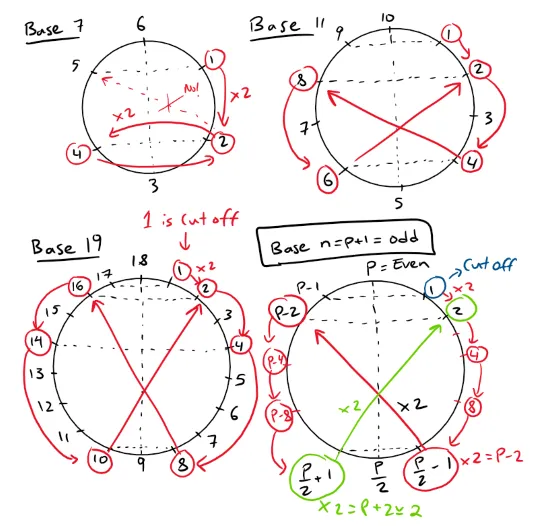 Base 7
6
5
1
No!
x2
x2
2
4
3
Base 11
10
9
1
2
8
3
7
4
6
5
1 is cut off
Base 19
18
17
1
x2
16
2
15
3
14
4
13
5
12
6
11
7
10
9
8
Base n=p+1 = odd
P = Even
Cut off
P-1
1
x2
P-2
2
P-4
4
P-8
8
x2
x2
P/2 + 1
P/2
P/2 - 1
x2 = P-2
x2 = P+2 ≌ 2